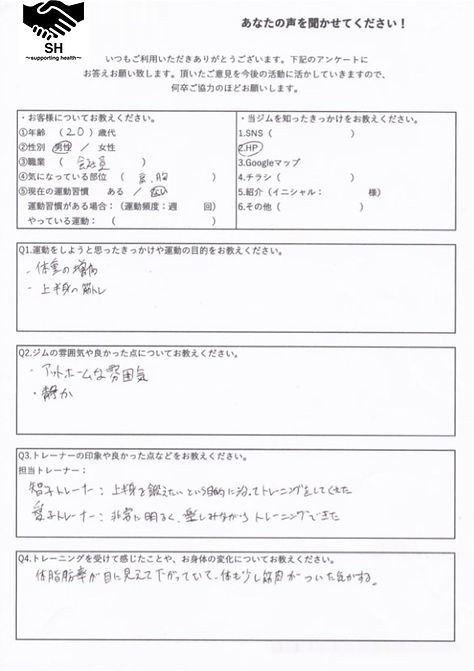 SH
~supporting health~
あなたの声を聞かせてください！
いつもご利用いただきありがとうございます。下記のアンケートに
お答えお願い致します。頂いたご意見を今後の活動に活かしていきますので、
何卒ご協力のほどお願いします。
・お客様についてお教えください。
①年齢 （ 20 ）歳代
②性別 男性 ／ 女性
③職業 （ 会社員 ）
④気になっている部位 （ 肩、胸 ）
⑤現在の運動習慣 ある ／ ない
運動習慣がある場合：（運動頻度：週 回）
やっている運動： （ ）
・当ジムを知ったきっかけをお教えください。
1.SNS（ ）
2.HP
3.Googleマップ
4.チラシ（ ）
5.紹介（イニシャル： 様）
6.その他（ ）
Q1.運動をしようと思ったきっかけや運動の目的をお教えください。
・体重の増加
・上半身の筋トレ
Q2.ジムの雰囲気や良かった点についてお教えください。
・アットホームな雰囲気
・静か
Q3.トレーナーの印象や良かった点などをお教えください。
担当トレーナー：
智子トレーナー：上半身を鍛えたいという目的に沿ってトレーニングをしてくれた
愛子トレーナー：非常に明るく、楽しみながらトレーニングできた
Q4.トレーニングを受けて感じたことや、お身体の変化についてお教えください。
体脂肪率が目に見えて下がっていて、体も少し筋肉がついた気がする。